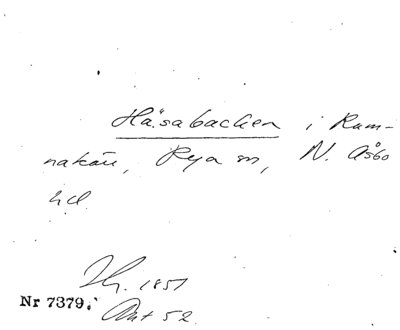 Häsabacken i Ram-
nakärr, Rya sn, N. Åsbo
hd.
1851
Nr 7379. Ant 52